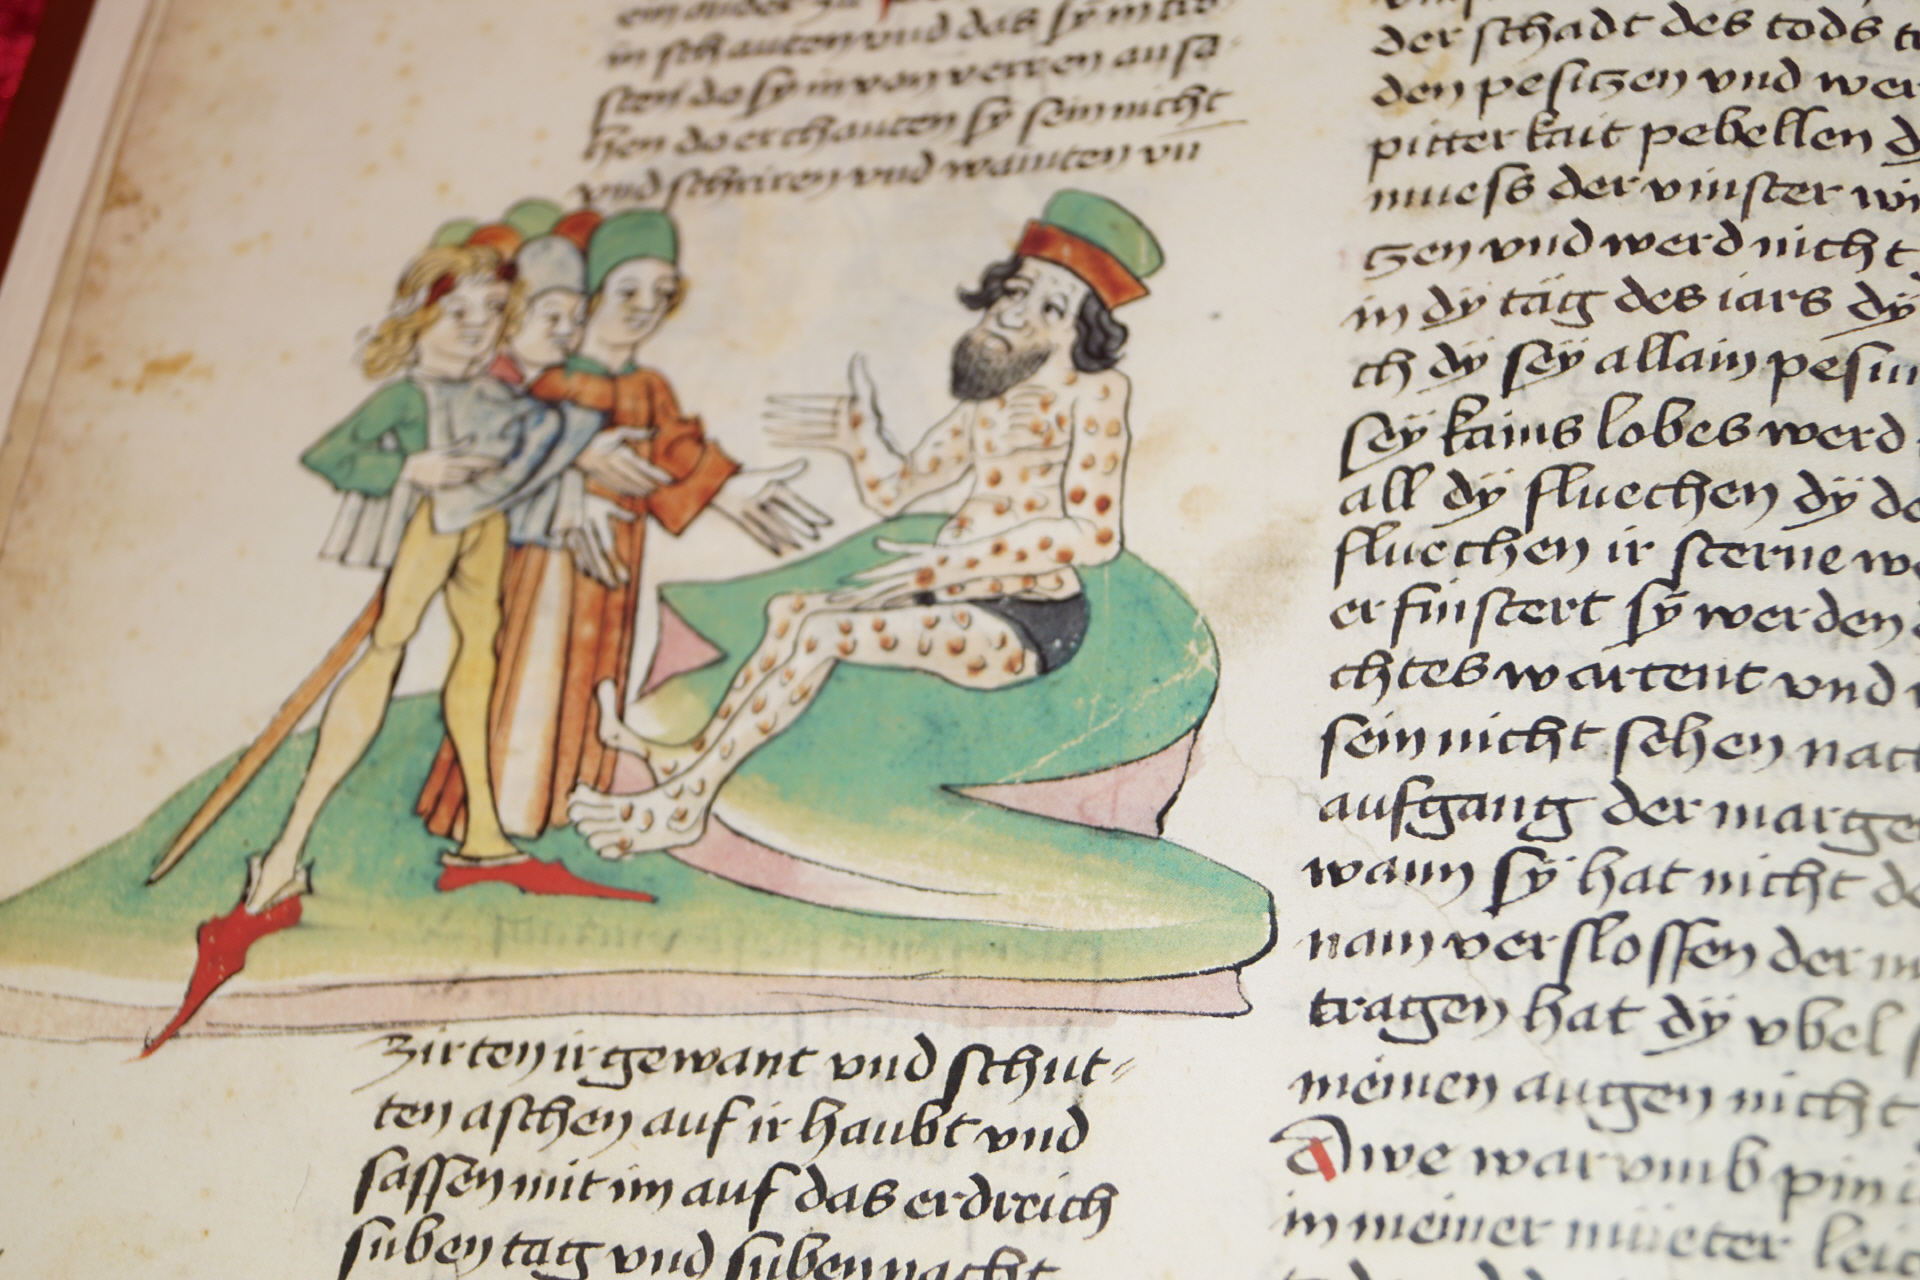 in schauten vnd das sy in tro
sten do sy in von verren ansa
hen do erchanten sy sein nicht
vnd schriren vnd wainten vn
zirten ir gewant vnd schut-
ten aschen auf ir haubt vnd
sassen mit im auf das erdreich
suben tag vnd suben nacht
der schadt des tods
den pesitzen vnd wer
pitterkait pebellen d
muess der vinster wi
tzen vnd werd nicht
in dÿ täg des iars dÿ
ch dÿ seÿ allain pesun
seÿ kains lobes werd
all dÿ fluechen dÿ de
fluechen ir sterne we
erfinstert sÿ werden
chtes wartent vnd
sein nicht sehen nach
aufgang der marge
wann sÿ hat nicht de
nam verslossen der m
tragen hat dÿ vbel s
meinen augen nicht
Awe warvmb pin i
in meiner müeter leic